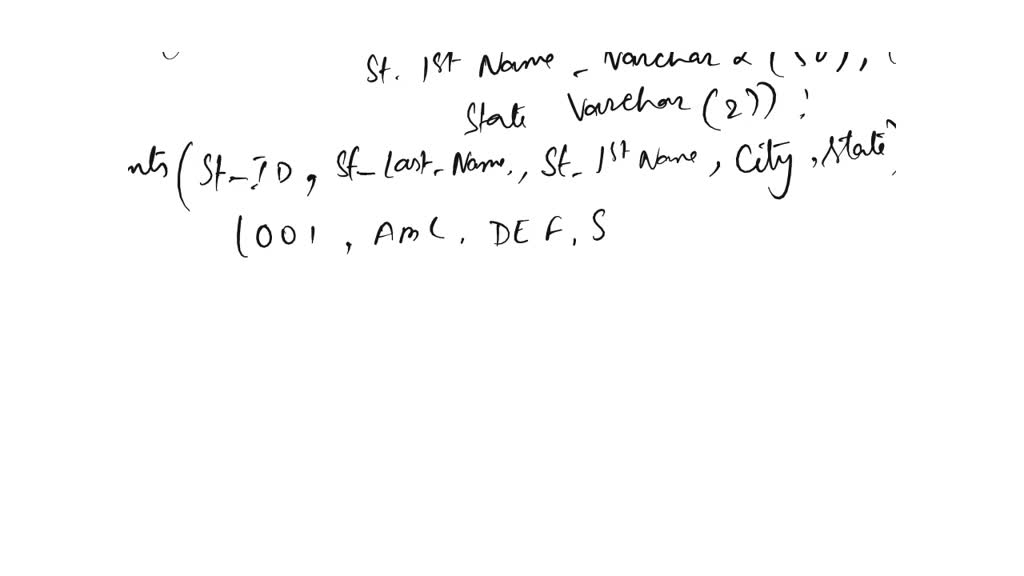 St. 1st Name - Varchar 2 (50), (
State Varchar (2));
nts (St_ID, St_Last_Name, St_1st Name, City, State
(001, AMC, DEF, S